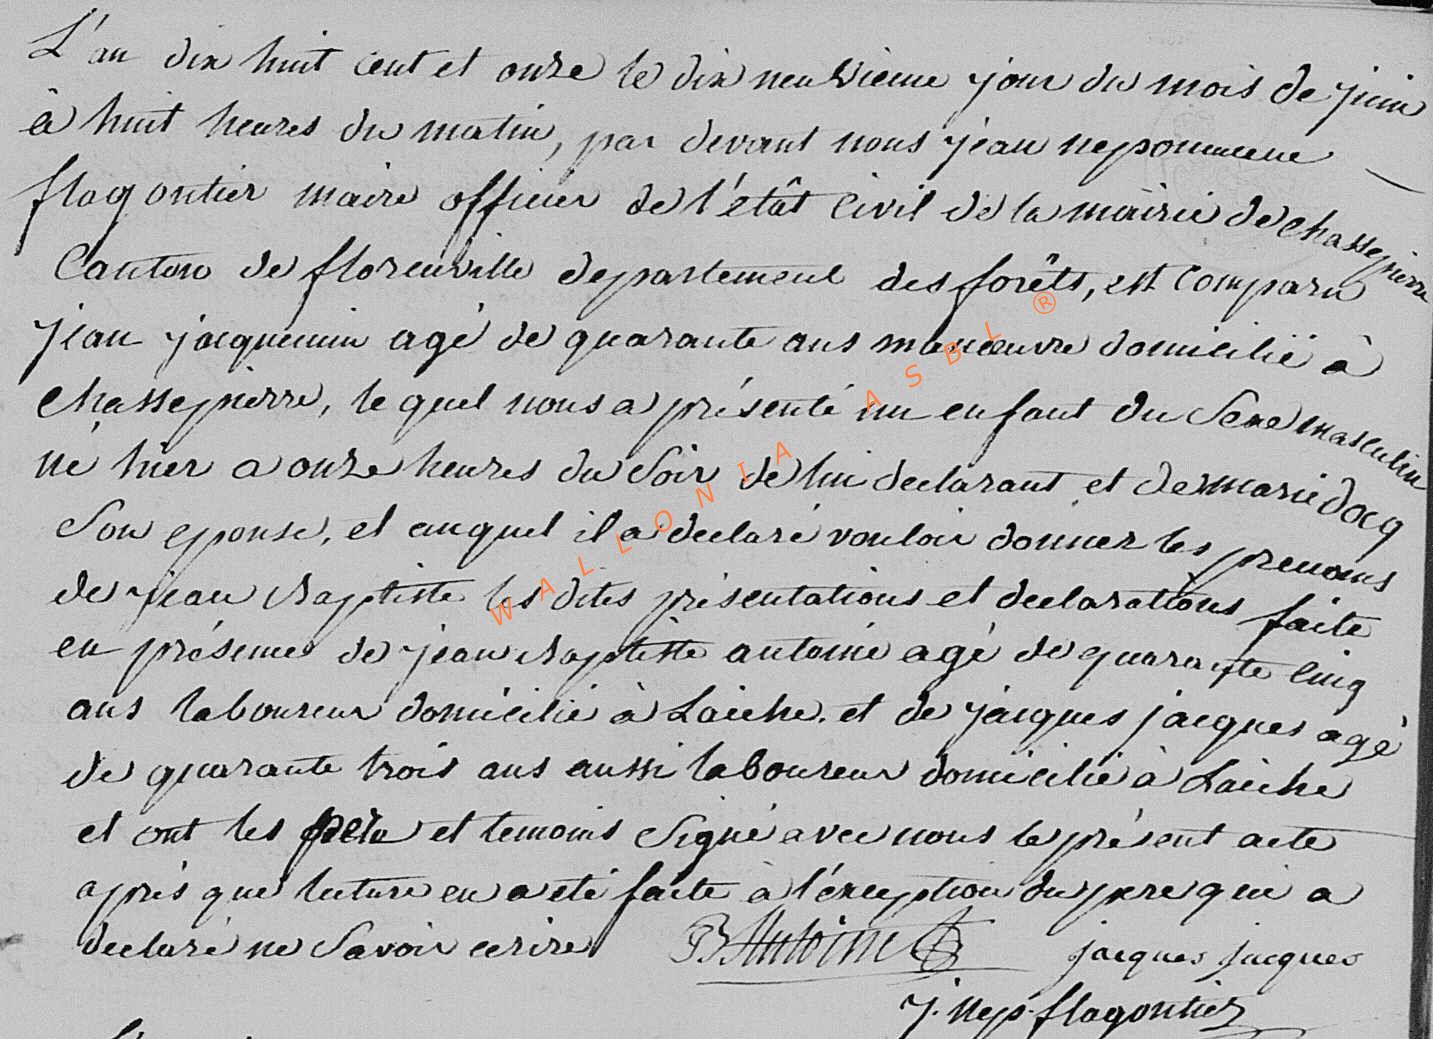 L'an dix huit cent et onze le dix neuvieme jour du mois de juin
à huit heures du matin, par devant nous jean nepomucene
flagontier maire officier de l'êtât civil de la mairie de chassepierre
Canton de florenville departement des forêts, est comparu
jean jacquemin agé de quarante ans manœuvre domicilié à
chassepierre, le quel nous a présenté un enfant du Sexe masculin
né hier a onze heures du Soir de lui declarant et de marie docq
Son epouse, et auquel il a declaré vouloir donner les prenoms
de jean Baptiste les dites présentations et declarations faite
en présence de jean Baptiste antoine agé de quarante cinq
ans laboureur domicilié à Laiche. et de jacques jacques agé
de quarante trois ans aussi laboureur domicilié à Laiche
et ont les père et temoins Signé avec nous le présent acte
aprés que lecture en a eté faite à l'éxception du pere qui a
declaré ne Savoir ecrire
JB Antoine
jacques jacques
j. nep. flagontier
WALLONIA ASBL ®